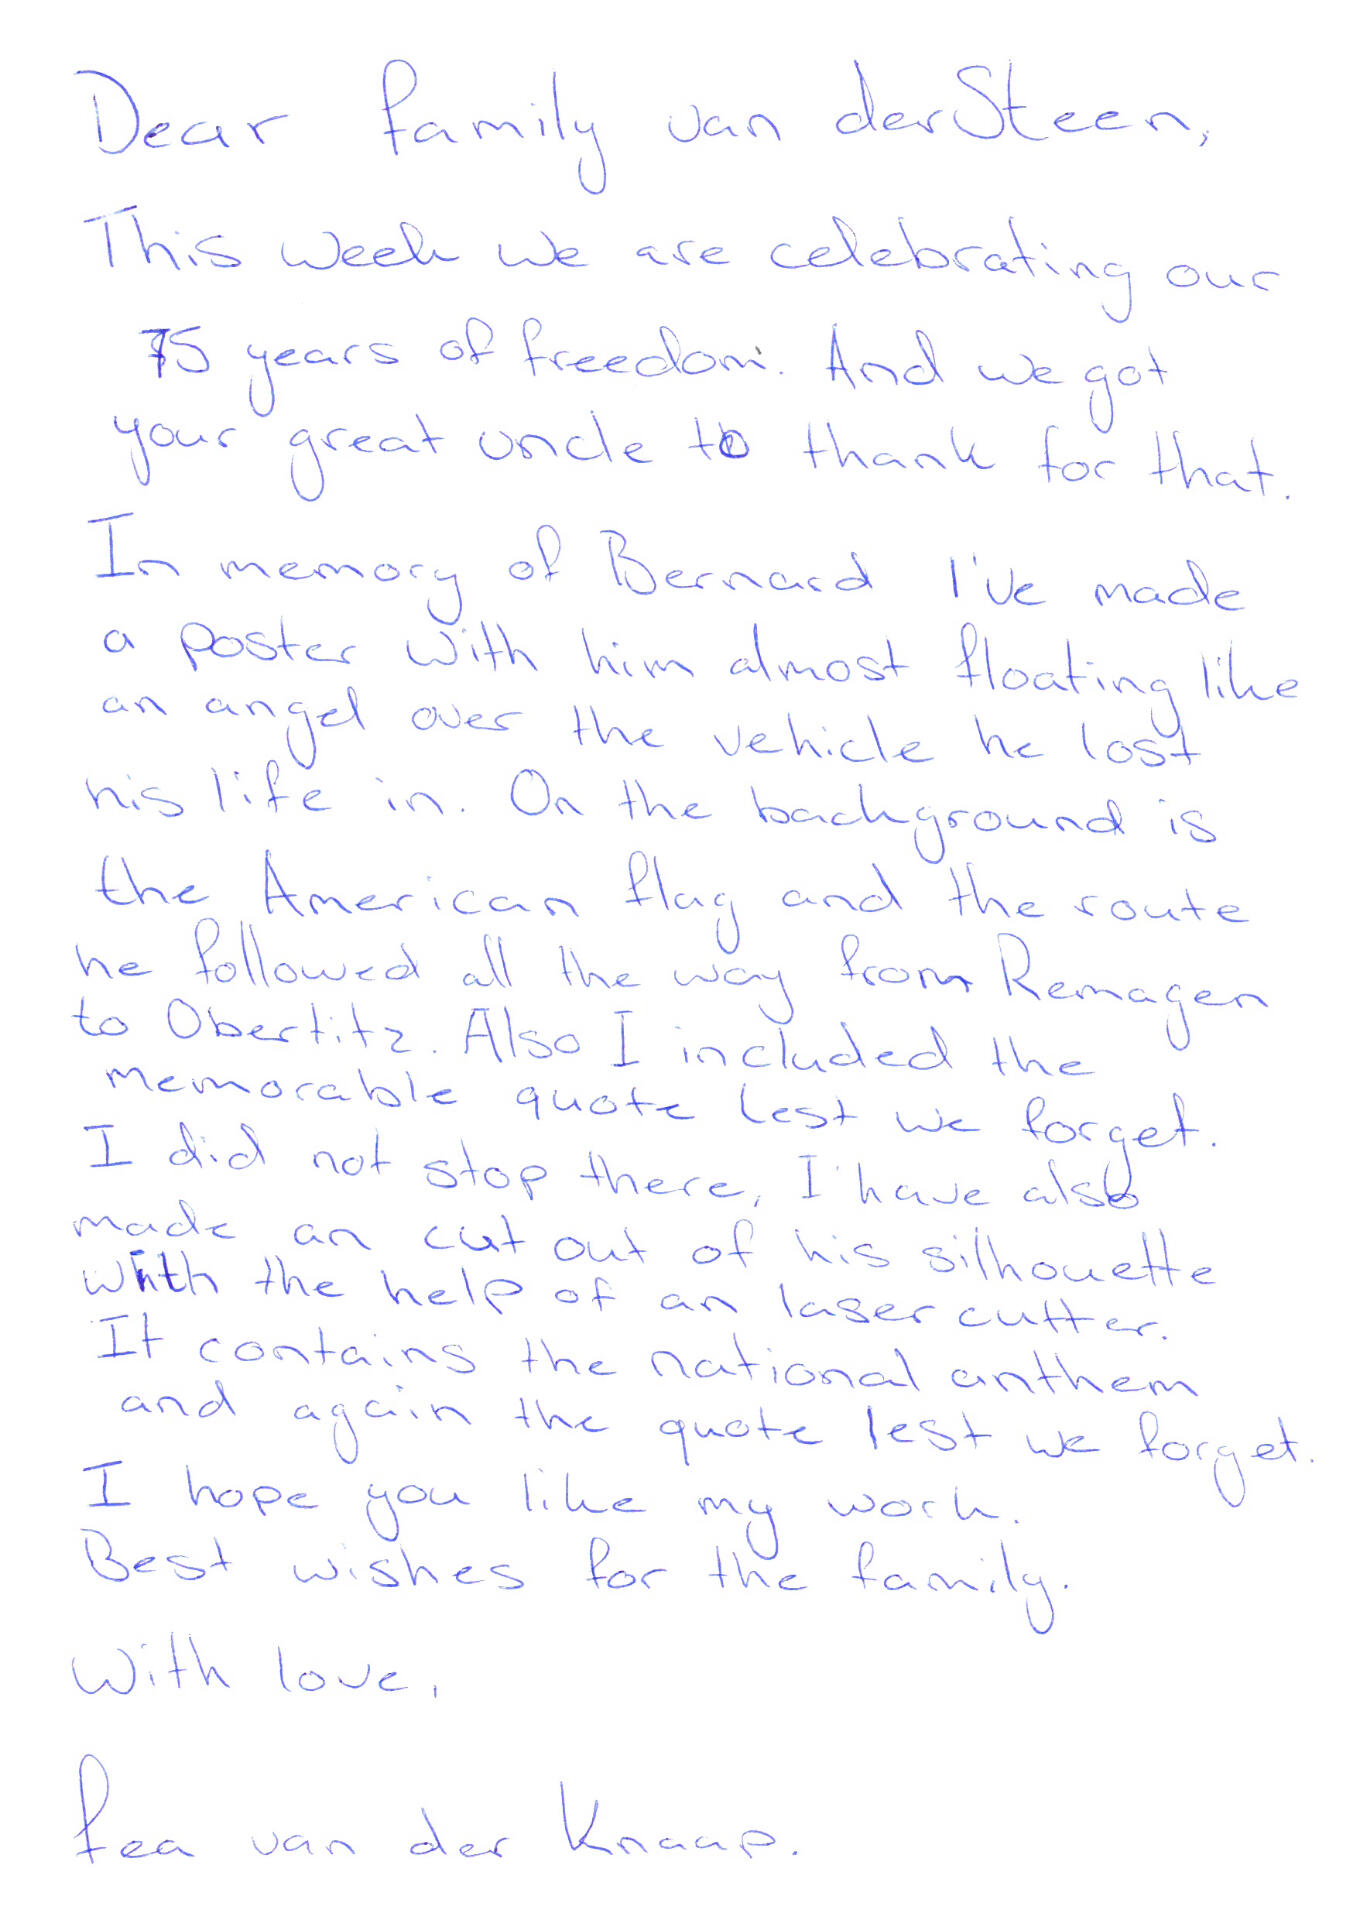 Dear family van der Steen,
This week we are celebrating our
75 years of freedom. And we got
your great uncle to thank for that.
In memory of Bernard I've made
a poster with him almost floating like
an angel over the vehicle he lost
his life in. On the background is
the American flag and the route
he followed all the way from Remagen
to Obertitz. Also I included the
memorable quote lest we forget.
I did not stop there, I have also
made an cut out of his silhouette
with the help of an laser cutter.
It contains the national anthem
and again the quote lest we forget.
I hope you like my work.
Best wishes for the family.
With love,
fea van der Knaap.